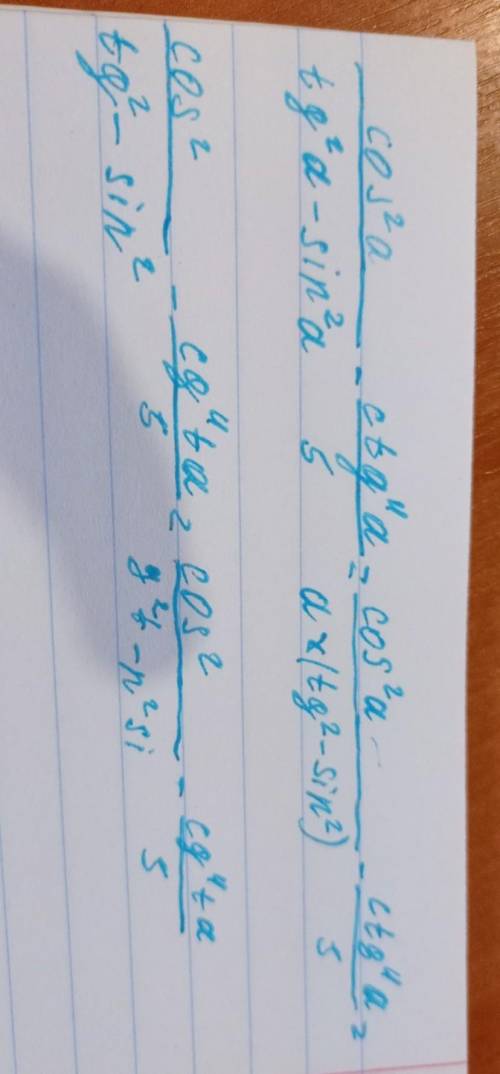 cos²a / tg²a - sin²a - ctg⁴a / 5 = cos²a / a × (tg² - sin²) - ctg⁴a / 5 =
cos² / tg² - sin² - cg⁴ta / 5 = cos² / g²t - n²si - cg⁴ta / 5